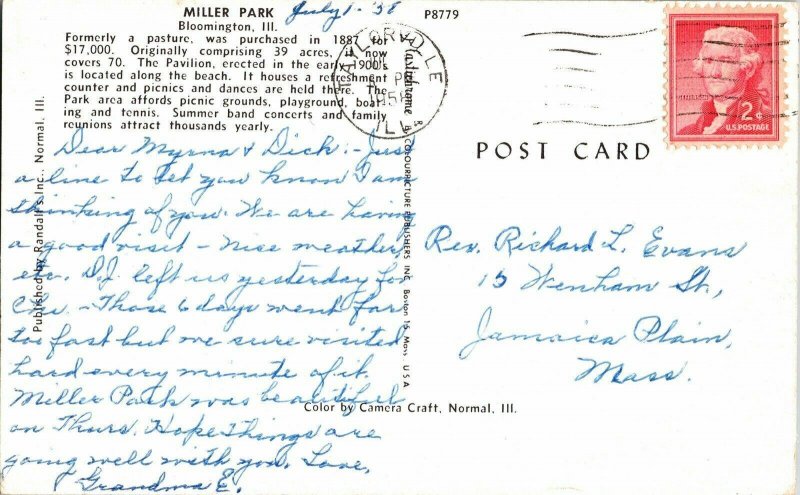 MILLER PARK
Bloomington, Ill.
July 1 - 58
P8779
Formerly a pasture, was purchased in 1887 for
$17,000. Originally comprising 39 acres, it now
covers 70. The Pavilion, erected in the early 1900's
is located along the beach. It houses a refreshment
counter and picnics and dances are held there. The
Park area affords picnic grounds, playground, boat-
ing and tennis. Summer band concerts and family
reunions attract thousands yearly.
TAYLORVILLE
PM
1958
ILL.
2¢
U.S. POSTAGE
POST CARD
Dear Myrna & Dick:- Just
a line to let you know I am
thinking of you. We are having
a good visit - nice weather,
etc. D.J. left us yesterday for
Chi. - Those 6 days went far
too fast but we sure visited
hard every minute of it.
Miller Park was beautiful
on Thurs. Hope things are
going well with you. Love,
Grandma E.
Rev. Richard L. Evans
15 Wenham St.,
Jamaica Plain,
Mass.
Published by Randall's Inc., Normal, Ill.
Plastichrome ® by COLOURPICTURE PUBLISHERS INC. Boston 15, Mass. U.S.A.
Color by Camera Craft, Normal, Ill.